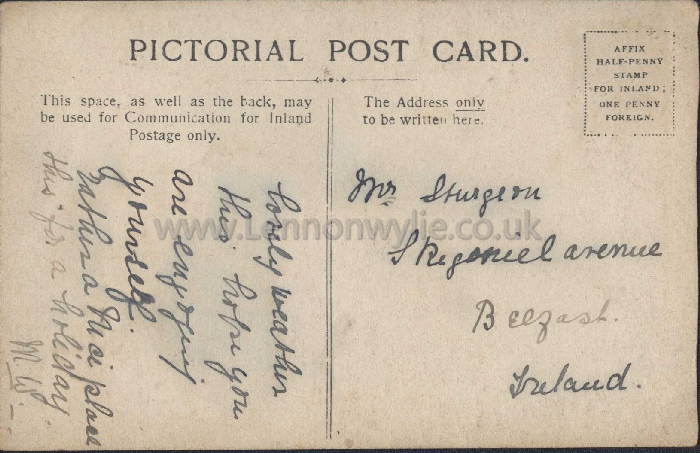 PICTORIAL POST CARD.
AFFIX
HALF-PENNY
STAMP
FOR INLAND;
ONE PENNY
FOREIGN.
This space, as well as the back, may
be used for Communication for Inland
Postage only.
The Address only
to be written here.
lovely weather
this hope you
are enjoying
yourself.
Rather a Nice place
this for a holiday.
M.W.
Mrs Sturgeon
Skegoniel avenue
Belfast.
Ireland.
www.Lennonwylie.co.uk